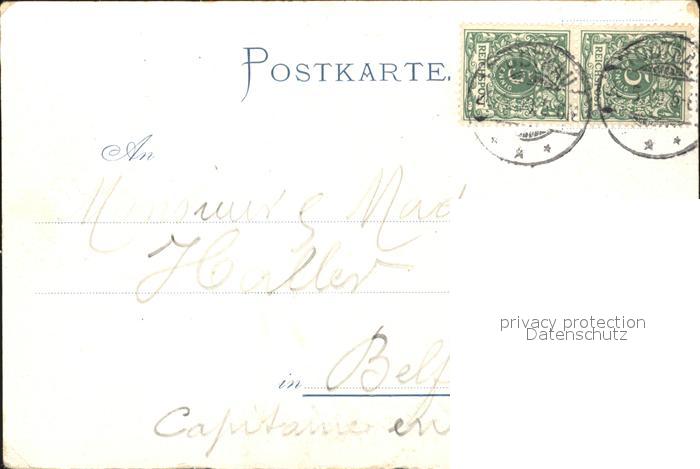 POSTKARTE.
REICHSPOST 5
REICHSPOST 5
An
Monsieur & Mad
Haller
privacy protection
Datenschutz
in Belf
Capitaine en